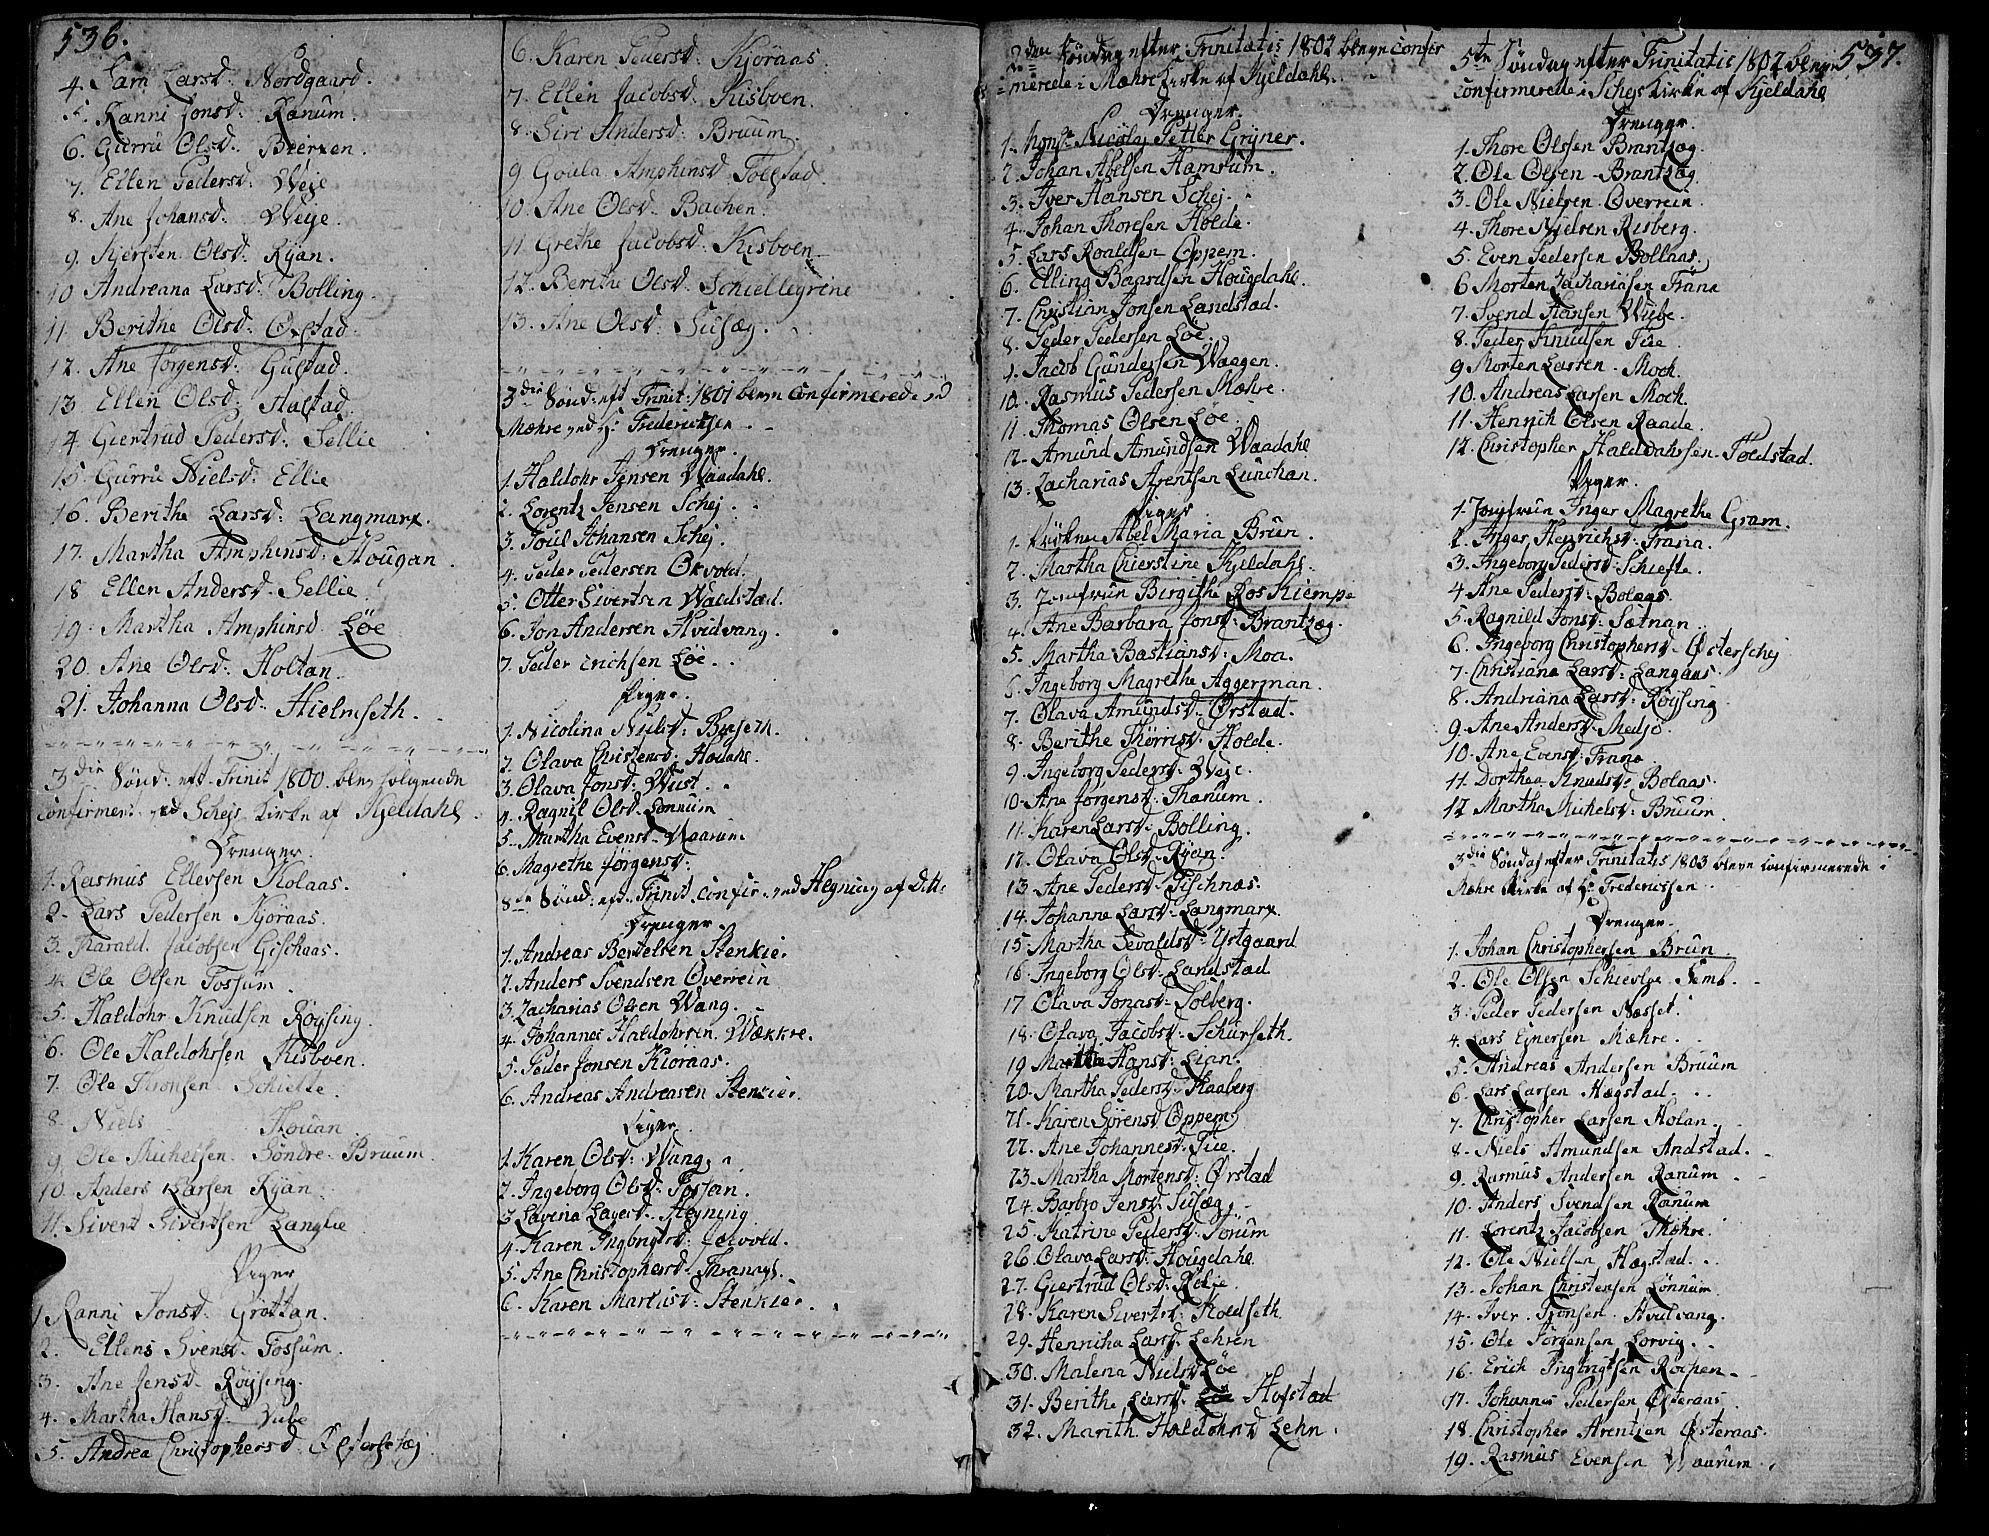 536.
4. Sam Larsd: Nordgaard.
5. Ranni Jonsd: Ranum.
6. Gurru Olsd: Bierken.
7. Ellen Pedersd: Weje
8. Ane Johansd: Weje.
9. Kjersten Olsd: Ryan.
10 Andreana Larsd: Bolling.
11 Berithe Olsd: Ørstad.
12. Ane Jørgensd: Gulstad.
13 Ellen Olsd: Halstad
14. Giertrud Pedersd: Sellie
15. Gurru Nielsd: Ellie
16. Berithe Larsd: Langmarx.
17. Martha Amphinsd: Hougan.
18 Ellen Andersd. Sellie.
19. Martha Amphinsd: Løe
20. Ane Olsd: Holtan.
21. Johanna Olsd: Hielmseth.
3die Sønd: eft Trinit 1800. blev følgende
confirmert ved Schejs Kirke af Kjeldahl.
Drenger.
1. Rasmus Ellevsen Kolaas.
2. Lars Pedersen Kjøraas.
3. Harald. Jacobsen Gifstaas.
4. Ole Olsen Fossum.
5. Haldohr Knudsen Røysing.
6. Ole Haldohrsen Kisboen.
7. Ole Thronsen Schiette.
8. Niels Houan
9. Ole Michelsen. Søndre Bruum.
10. Anders Larsen Ryan
11. Sivert Sivertsen Langlie
Piger
1. Ranni Jonsd. Grøttan.
2. Ellens Svensd. Fossum.
3. Ane Jensd. Røysing.
4. Martha Hansd. Vibe
5. Andrea Christophersd. Østerschej
6. Karen Pedersd: Kjøraas.
7. Ellen Jacobsd: Kisboen.
8. Siri Andersd: Bruum.
9. Goula Amphinsd Follstad.
10. Ane Olsd. Bachen.
11. Grethe Jacobsd: Kisboen.
12. Berithe Olsd: Schiellegrine
13. Ane Olsd: Sulsæg.
3die Sønd: eft Trinit: 1801 bleve confirmerede ved
Mæhre ved Hr: Frederichsen.
Drenger.
1. Haldohr Jensen Waadahl.
2. Lorentz Jensen Schej.
3. Poul Johansen Schej.
4. Peder Pedersen Okvold.
5. Otter Sivertsen Waldstad.
6. Jon Andersen Hvidvang.
7. Peder Erichsen Løe.
Piger.
1. Nicolina Nielsd: Binseth.
2. Olava Christensd. Hodahl.
3. Olava Jonsd. Wist.
4. Ragnil Olsd. Lønnum
5. Martha Evensd. Waarum
6. Magrethe Jørgensd:
8de Sønd: eft Trinit confir: ved Hegning af Ditto
Drenger.
1. Andreas Bertelsen Stenkier
2. Anders Svendsen Overrein
3. Zacharias Olsen Wang.
4. Johannes Haldohrsen Wækkre.
5. Peder Jonsen Kioraas.
6. Andreas Andreasen Stenkier.
Piger.
1. Karen Olsd: Wang.
2. Ingeborg Olsd. Fossan.
3. Lavina Lagesd. Hegning
4. Karen Ingbrigtsd:
5. Ane Christophersd:
6. Karen Martisd: Stenkier.
2den Søndag efter Trinitatis 1802 bleve confir
merede i Mæhre Kirke af Kjeldahl.
Drenger.
1. Monsr Nicolaj Petter Gryner.
2. Johan Abelsen Hamrum.
3. Iver Hansen Schej.
4. Johan Thoresen Holde.
5. Lars Roaldsen Oppem.
6. Elling Baardsen Hougdahl.
7. Christian Jonsen Landstad.
8. Peder Pedersen Løe
9. Jacob Gundersen Waagen.
10. Rasmus Pedersen Mæhre.
11. Thomas Olsen Løe.
12. Amund Amundsen Waadahl
13. Zacharias Arentsen Lunchan.
Piger
1. Frøken Abel Maria Brun.
2. Martha Chierstine Kjeldahl.
3. Jomfrun Birgithe Ros Kiempe
4. Ane Barbara Jonsd: Brantzæg.
5. Martha Bastiansd: Moa.
6. Ingeborg Magrethe Aggerman.
7. Olava Amundsd. Ørstad.
8. Berithe Thorrisd: Holde.
9. Ingeborg Pedersd. Weje.
10. Ane Jørgensd: Thanum.
11. Karen Larsd: Bolling.
12. Olava Olsd. Ryan.
13. Ane Pedersd. Gischnæs.
14. Johanne Larsd: Langmarx.
15. Martha Sevaldsd: Ystgaard
16. Ingeborg Olsd. Landstad
17 Olava Jonasd: Solberg.
18. Olava Jacobsd: Schurseth.
19 Hansd: Lian.
20. Martha Pedersd. Haaberg
21. Karen Sørensd Oppem
22. Ane Johannesd: Tue.
23. Martha Mortensd: Ørstad
24. Barbro Jensd. Sulsæg
25. Katrine Pedersd: Forum
26. Olava Larsd: Hougdahl
27. Giertrud Olsd: Rolie.
28. Karen Sivertsd: Koldseth.
29. Henricha Larsd. Lehren
30. Malena Nielsd Løe
31. Berithe Larsd. Hofstad
32. Marith Haldohrsd Lehn.
5te Søndag efter Trinitatis 1802 bleve 537.
confirmerede i Schejs Kirke af Kjeldahl
Drenger.
1. Thore Olssen Brantzæg.
2. Ole Olsen Brantzæg
3. Ole Nielsen Overrein.
4. Thore Nielsen Risberg.
5. Even Pedersen Bollaas.
6 Morten Zachariasen Frana
7. Svend Hansen Wibe.
8. Peder Knudsen Tue.
9 Morten Larsen. Moch.
10. Andreas Larsen Moch.
11. Henrich Olsen Raade.
12. Christopher Halddahrsen Foldstad.
Piger.
1. Jomfrun Inger Magrethe Gram.
2. Inger Henrichsd: Frana.
3. Ingeborg Pedersd: Schiefte.
4 Ane Pedersd. Bolaas.
5. Ragnild Jonsd: Sætnan.
6. Ingeborg Christophersd. Østerschej
7. Christiana Larsd: Langaas.
8. Andriana Larsd: Røysing
9. Ane Andersd. Medjo.
10. Ane Evensd: Frana
11. Dorthea Knudsd: Bolaas.
12 Martha Michelsd: Bruum.
3die Søndag efter Trinitatis 1803 bleve confirmerede i
Mæhre Kirke af Hr: Frederichsen.
Drenger.
1. Johan Christophersen Brun.
2. Ole Olsen Semb.
3. Peder Pedersen Næsset.
4. Lars Ejnersen Mæhre.
5. Andreas Andersen Bruum
6. Lars Larsen Hægstad.
7. Christopher Larsen Holan.
8. Niels Amundsen Andstad.
9. Rasmus Andersen Ranum.
10. Anders Svendsen Ranum
11. Lorentz Jacobsen Mohre.
12. Ole Nielsen Hægstad.
13. Johan Christensen Lønnum.
14. Iver Tronsen. Hvidvang.
15. Ole Jørgensen Lorvig.
16. Erich Ingbrigtsen
17. Johannes Pedersen Østeraas.
18. Christopher Arentzen Østeraas.
19. Rasmus Evensen Waarum.